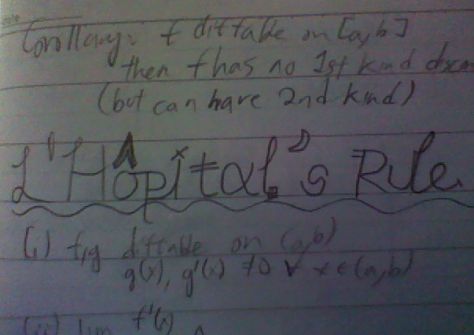 Corollary: f diffable on [a,b]
then f has no 1st kind
(but can have 2nd kind)
L'Hôpital's Rule
(i) f,g diffable on (a,b)
g(x), g'(x) ≠0 ∀ x∈(a,b)
(ii) lim f'(x)